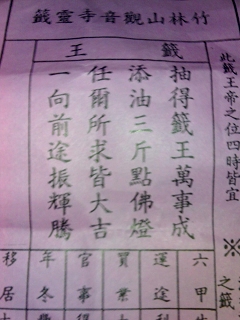 竹林山觀音寺靈籤
此籤王帝之位四時皆宜
※
籤王
抽得籤王萬事成
添油三斤點佛燈
任爾所求皆大吉
一向前途振輝騰
六甲
運途
買
官事得
年冬
移居